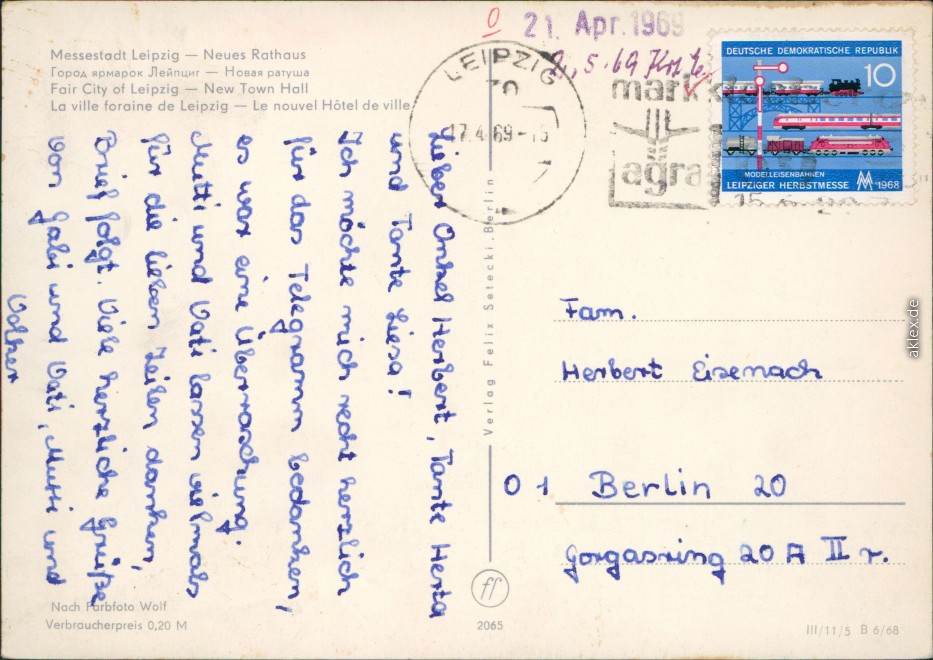 Messestadt Leipzig — Neues Rathaus
Город ярмарок Лейпциг — Новая ратуша
Fair City of Leipzig — New Town Hall
La ville foraine de Leipzig — Le nouvel Hôtel de ville
Lieber Onkel Herbert, Tante Herta
und Tante Liesa!
Ich möchte mich recht herzlich
für das Telegramm bedanken,
es war eine Überraschung.
Mutti und Vati lassen vielmals
für die lieben Zeilen danken,
Brief folgt. Viele herzliche Grüße
von Gabi und Vati, Mutti und
Volker
Nach Farbfoto Wolf
Verbraucherpreis 0,20 M
Verlag Felix Setecki, Berlin
ff
2065
0
21. Apr. 1969
2.5.69
LEIPZIG
17.4.69
mark
agra
DEUTSCHE DEMOKRATISCHE REPUBLIK
10
MODELLEISENBAHNEN
LEIPZIGER HERBSTMESSE MM 1968
Fam.
Herbert Eisenach
01 Berlin 20
Gorgasring 20 A III r.
III/11/5 B 6/68
akpool.de